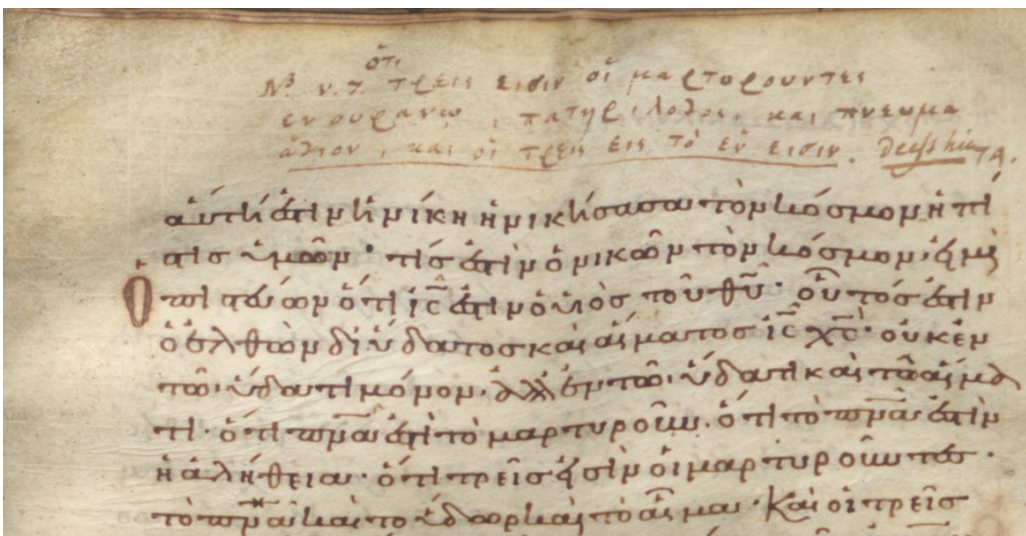 ὅτι
Nᵃ ν. τ. τρεις εισιν οἱ μαρτορουντες
εν ουρανω, πατηρ, λογος, και πνευμα
ἁγιον, και οἱ τρεις εις τὸ ἑν εισιν.
αὕτη ἐστὶν ἡ νίκη ἡ νικήσασα τὸν κόσμον ἡ πί
στις ὑμῶν· τίς ἐστὶν ὁ νικῶν τὸν κόσμον· εἰ μὴ
Ὁ πιστεύων ὅτι ἰ̅ς̅ ἐστὶν ὁ υἱὸς τοῦ θ̅υ̅· οὗτός ἐστιν
ὁ ἐλθὼν δι ὕδατος καὶ αἵματος ἰ̅ς̅ χ̅ς̅· οὐκ ἐν
τῶ ὕδατι μόνον· ἀλλ ἐν τῶ ὕδατι καὶ τῶ αἵμα
τι· ὅτι τὸ π̅ν̅α̅ ἐστὶ τὸ μαρτυροῦν· ὅτι τὸ π̅ν̅α̅ ἐστὶν
ἡ ἀλήθεια· ὅτι τρεῖς εἰσὶν οἱ μαρτυροῦντες·
τὸ π̅ν̅α̅ καὶ το ὕδωρ καὶ τὸ αἷμα· Καὶ οἱ τρεῖς